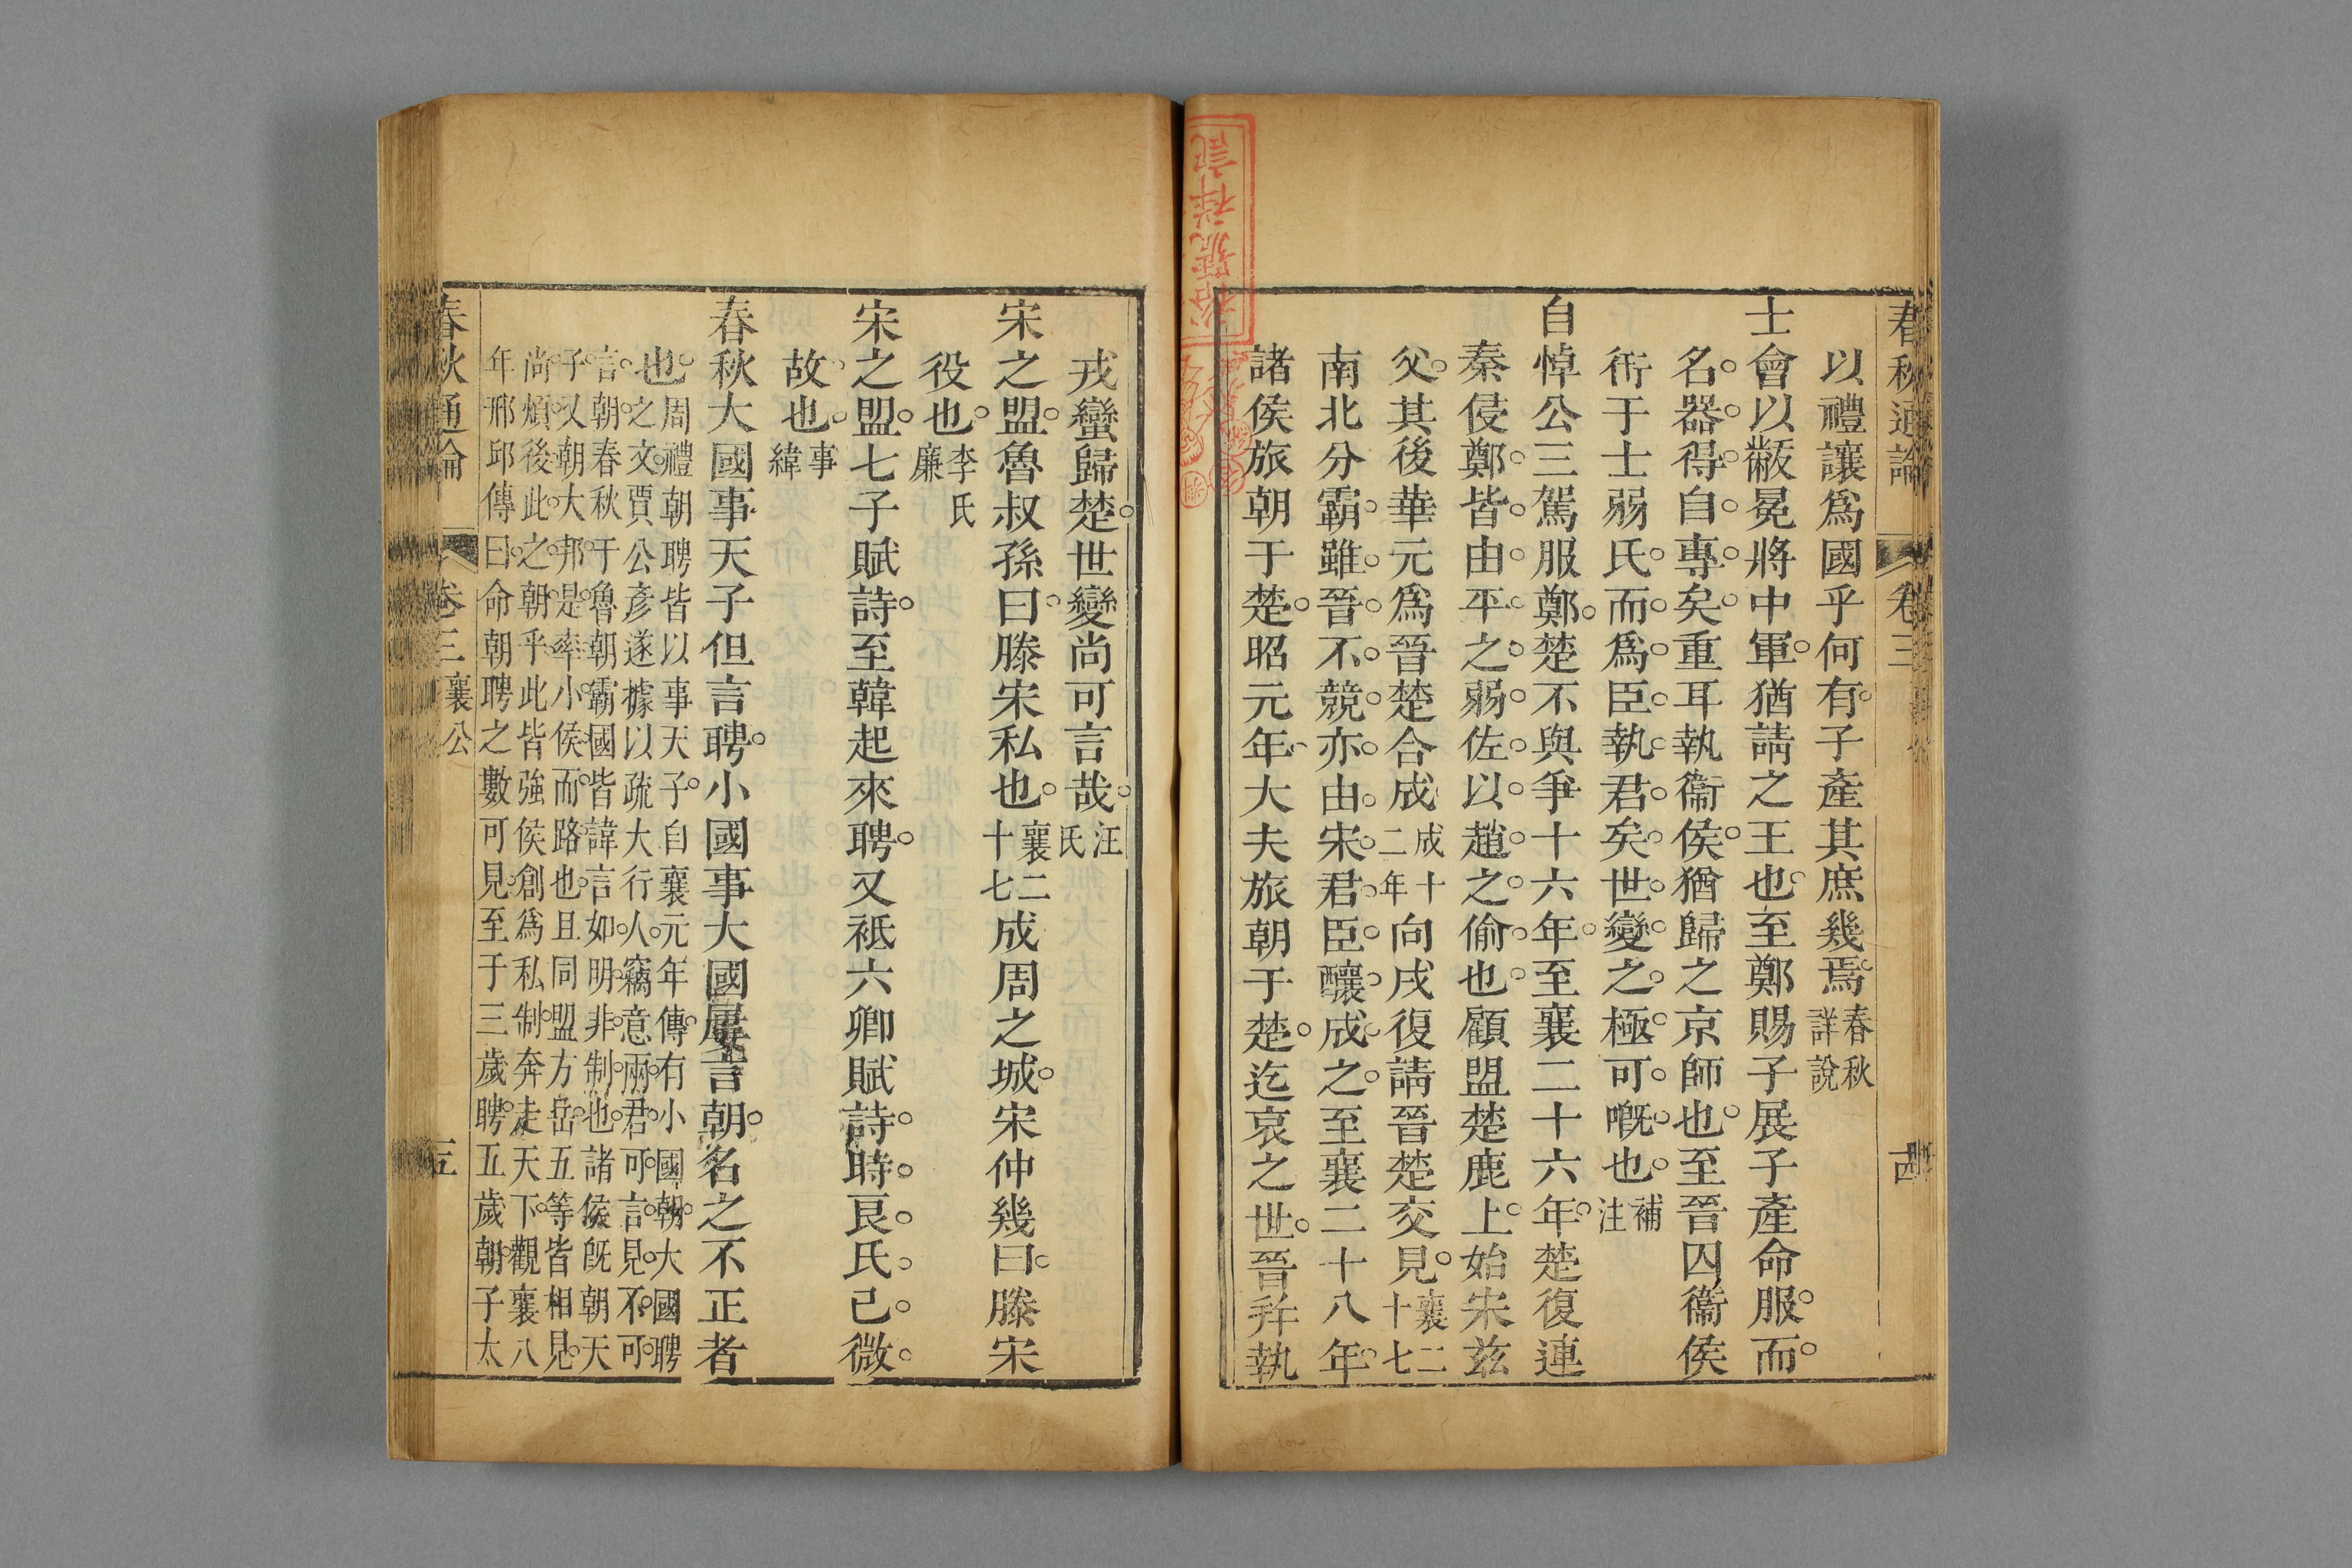 春秋通論 卷三
以禮讓爲國乎何有子產其庶幾焉春秋詳說
士會以黻冕將中軍猶請之王也至鄭賜子展子產命服而
名器得自專矣重耳執衞侯猶歸之京師也至晉囚衞侯
衎于士弱氏而爲臣執君矣世變之極可嘅也補注
自悼公三駕服鄭楚不與爭十六年至襄二十六年楚復連
秦侵鄭皆由平之弱佐以趙之偷也顧盟楚鹿上始宋茲
父其後華元爲晉楚合成成十二年向戌復請晉楚交見襄二十七
南北分霸雖晉不競亦由宋君臣釀成之至襄二十八年
諸侯旅朝于楚昭元年大夫旅朝于楚迄哀之世晉幷執
戎蠻歸楚世變尚可言哉汪氏
宋之盟魯叔孫曰滕宋私也襄二十七成周之城宋仲幾曰滕宋
役也李氏廉
宋之盟七子賦詩至韓起來聘又衹六卿賦詩時良氏已微
故也事緯
春秋大國事天子但言聘小國事大國屢言朝名之不正者
也周禮朝聘皆以事天子自襄元年傳有小國朝大國聘
之文賈公彥遂據以疏大行人竊意兩君可言見不可
言朝春秋于魯朝霸國皆諱言如明非制也諸侯既朝天
子又朝大邦是率小侯而路也且同盟方岳五等皆相見
尚煩後此之朝乎此皆強侯創爲私制奔走天下觀襄八
年邢邱傳曰命朝聘之數可見至于三歲聘五歲朝子太
春秋通論 卷三 襄公